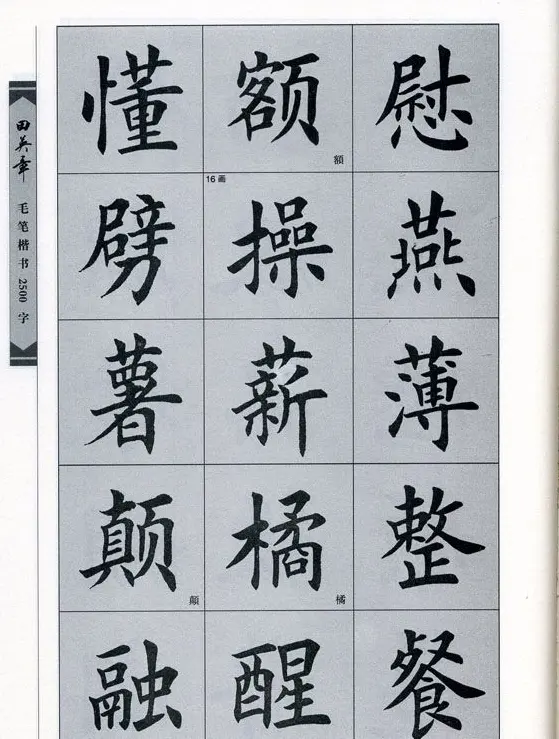 田英章
毛笔楷书2500字
懂 额 慰
額
16画
劈 操 燕
薯 薪 薄
颠 橘 整
顛 橘
融 醒 餐